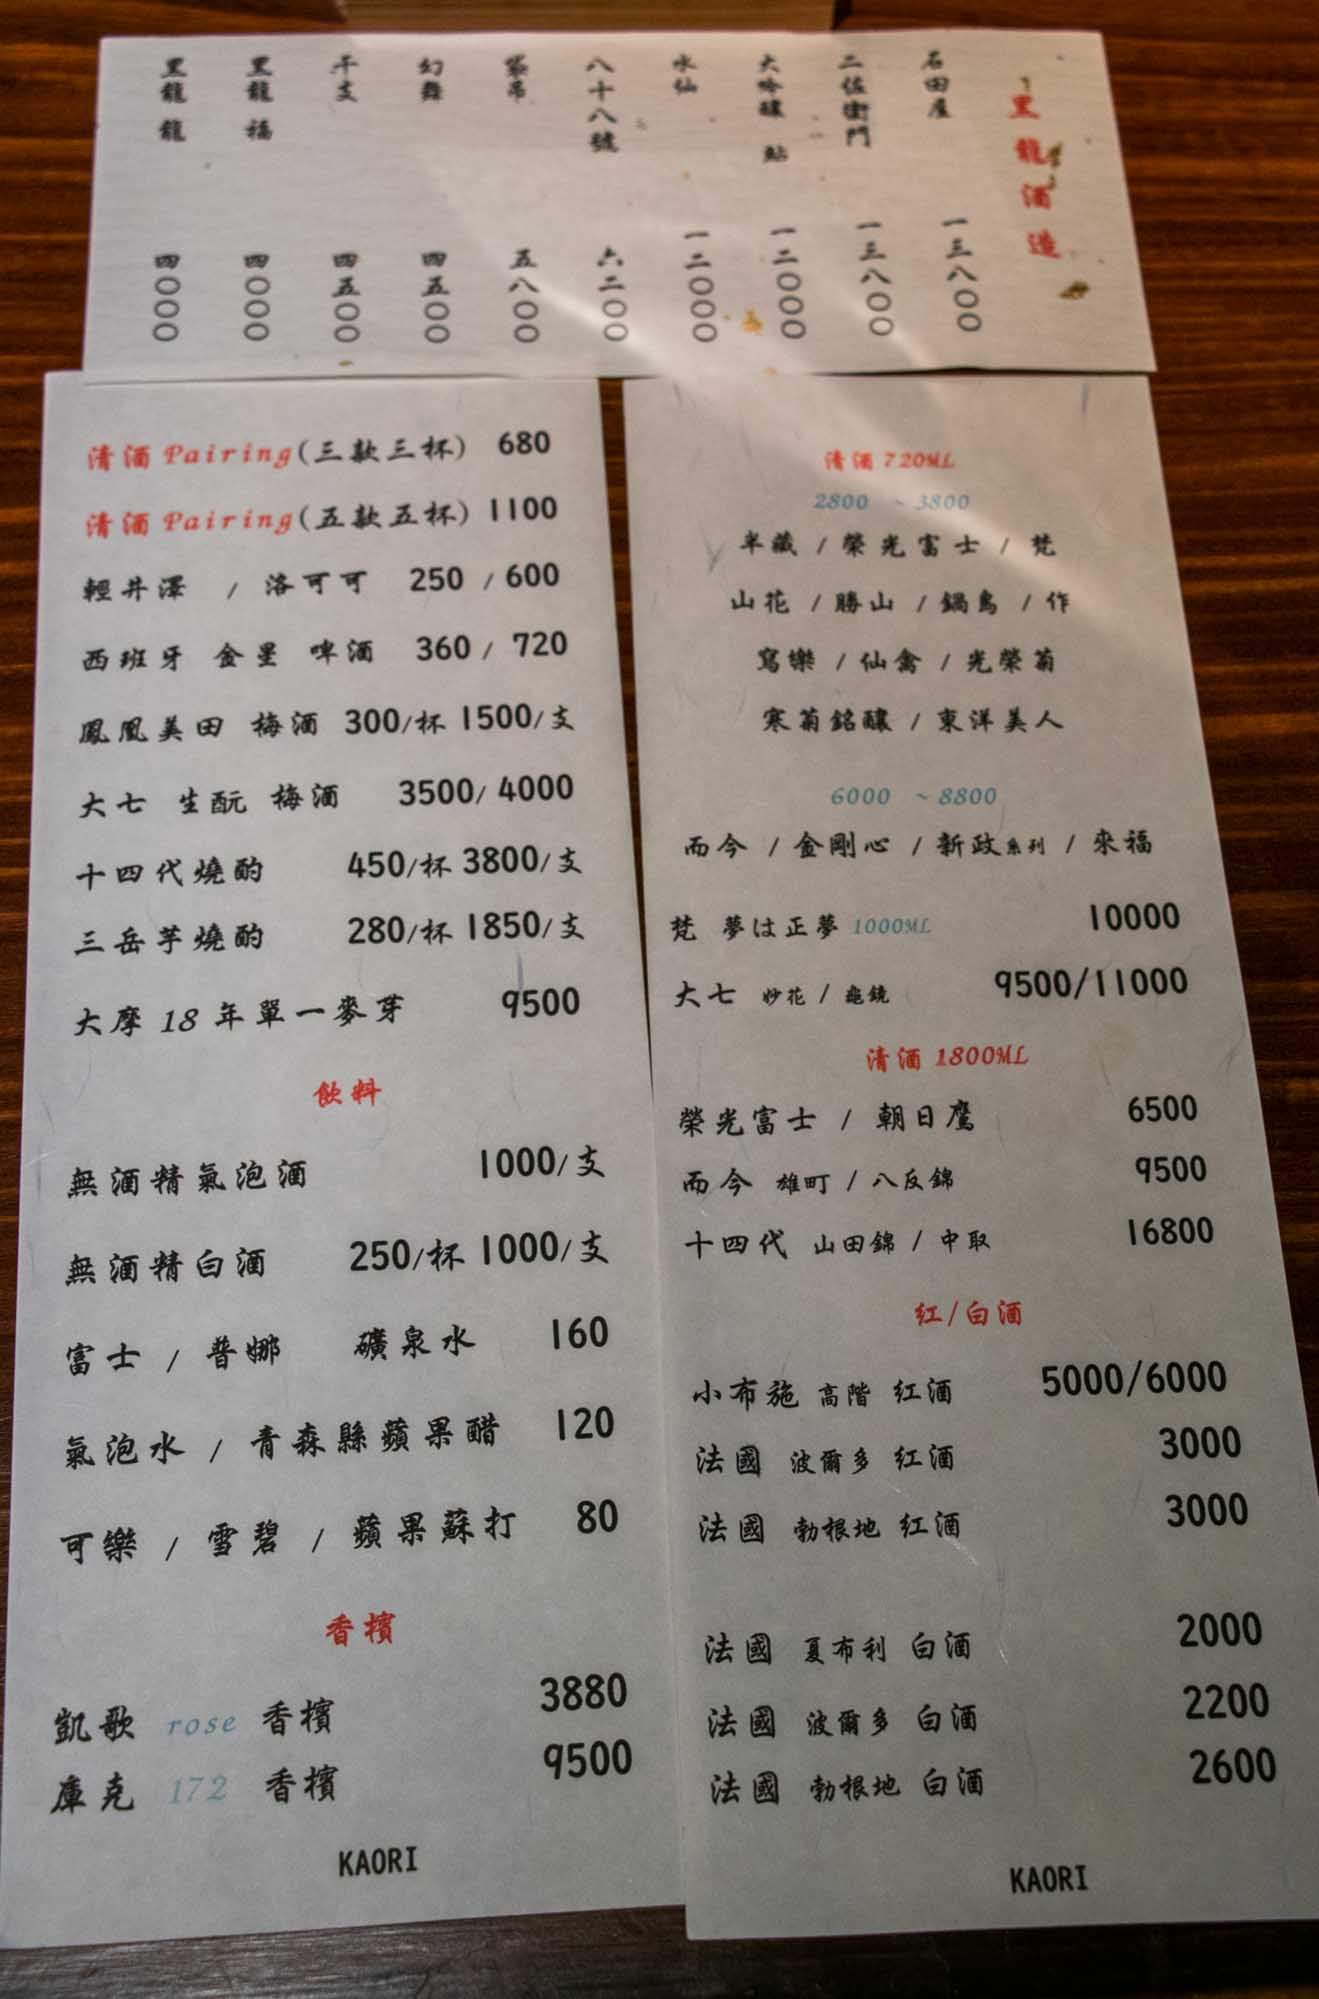 黑龍酒造
石田屋 一三八〇〇
二佐衛門 一三八〇〇
大吟釀 鮎 一二〇〇〇
水仙 一二〇〇〇
八十八號 六二〇〇
袋吊 五八〇〇
幻舞 四五〇〇
干支 四五〇〇
黑龍 福 四〇〇〇
黑龍 龍 四〇〇〇
清酒 Pairing(三款三杯) 680
清酒 Pairing(五款五杯) 1100
輕井澤 / 洛可可 250 / 600
西班牙 金星 啤酒 360 / 720
鳳凰美田 梅酒 300/杯 1500/支
大七 生酛 梅酒 3500/ 4000
十四代燒酌 450/杯 3800/支
三岳芋燒酌 280/杯 1850/支
大摩 18 年單一麥芽 9500
飲料
無酒精氣泡酒 1000/支
無酒精白酒 250/杯 1000/支
富士 / 普娜 礦泉水 160
氣泡水 / 青森縣蘋果醋 120
可樂 / 雪碧 / 蘋果蘇打 80
香檳
凱歌 rose 香檳 3880
庫克 172 香檳 9500
KAORI
清酒 720ML
2800 ~ 3800
半藏 / 榮光富士 / 梵
山花 / 勝山 / 鍋島 / 作
寫樂 / 仙禽 / 光榮菊
寒菊銘釀 / 東洋美人
6000 ~ 8800
而今 / 金剛心 / 新政系列 / 來福
梵 夢は正夢 1000ML 10000
大七 妙花 / 龜鏡 9500/11000
清酒 1800ML
榮光富士 / 朝日鷹 6500
而今 雄町 / 八反錦 9500
十四代 山田錦 / 中取 16800
紅/白酒
小布施 高階 紅酒 5000/6000
法國 波爾多 紅酒 3000
法國 勃根地 紅酒 3000
法國 夏布利 白酒 2000
法國 波爾多 白酒 2200
法國 勃根地 白酒 2600
KAORI